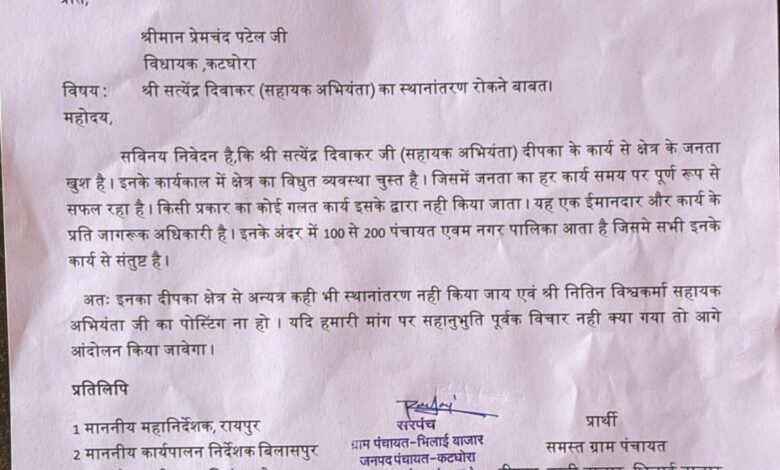 प्रति,
श्रीमान प्रेमचंद पटेल जी
विधायक ,कटघोरा
विषय : श्री सत्येंद्र दिवाकर (सहायक अभियंता) का स्थानांतरण रोकने बाबत।
महोदय,
सविनय निवेदन है,कि श्री सत्येंद्र दिवाकर जी (सहायक अभियंता) दीपका के कार्य से क्षेत्र के जनता
खुश है। इनके कार्यकाल में क्षेत्र का विधुत व्यवस्था चुस्त है। जिसमें जनता का हर कार्य समय पर पूर्ण रूप से
सफल रहा है। किसी प्रकार का कोई गलत कार्य इसके द्वारा नही किया जाता। यह एक ईमानदार और कार्य के
प्रति जागरूक अधिकारी है। इनके अंदर में 100 से 200 पंचायत एवम नगर पालिका आता है जिसमे सभी इनके
कार्य से संतुष्ट है।
अतः इनका दीपका क्षेत्र से अन्यत्र कही भी स्थानांतरण नही किया जाय एवं श्री नितिन विश्वकर्मा सहायक
अभियंता जी का पोस्टिंग ना हो । यदि हमारी मांग पर सहानुभुति पूर्वक विचार नही क्या गया तो आगे
आंदोलन किया जावेगा।
प्रतिलिपि
1 माननीय महानिर्देशक, रायपुर
2 माननीय कार्यपालन निर्देशक बिलासपुर
सरपंच
ग्राम पंचायत-भिलाई बाजार
जनपद पंचायत-कटघोरा
प्रार्थी
समस्त ग्राम पंचायत